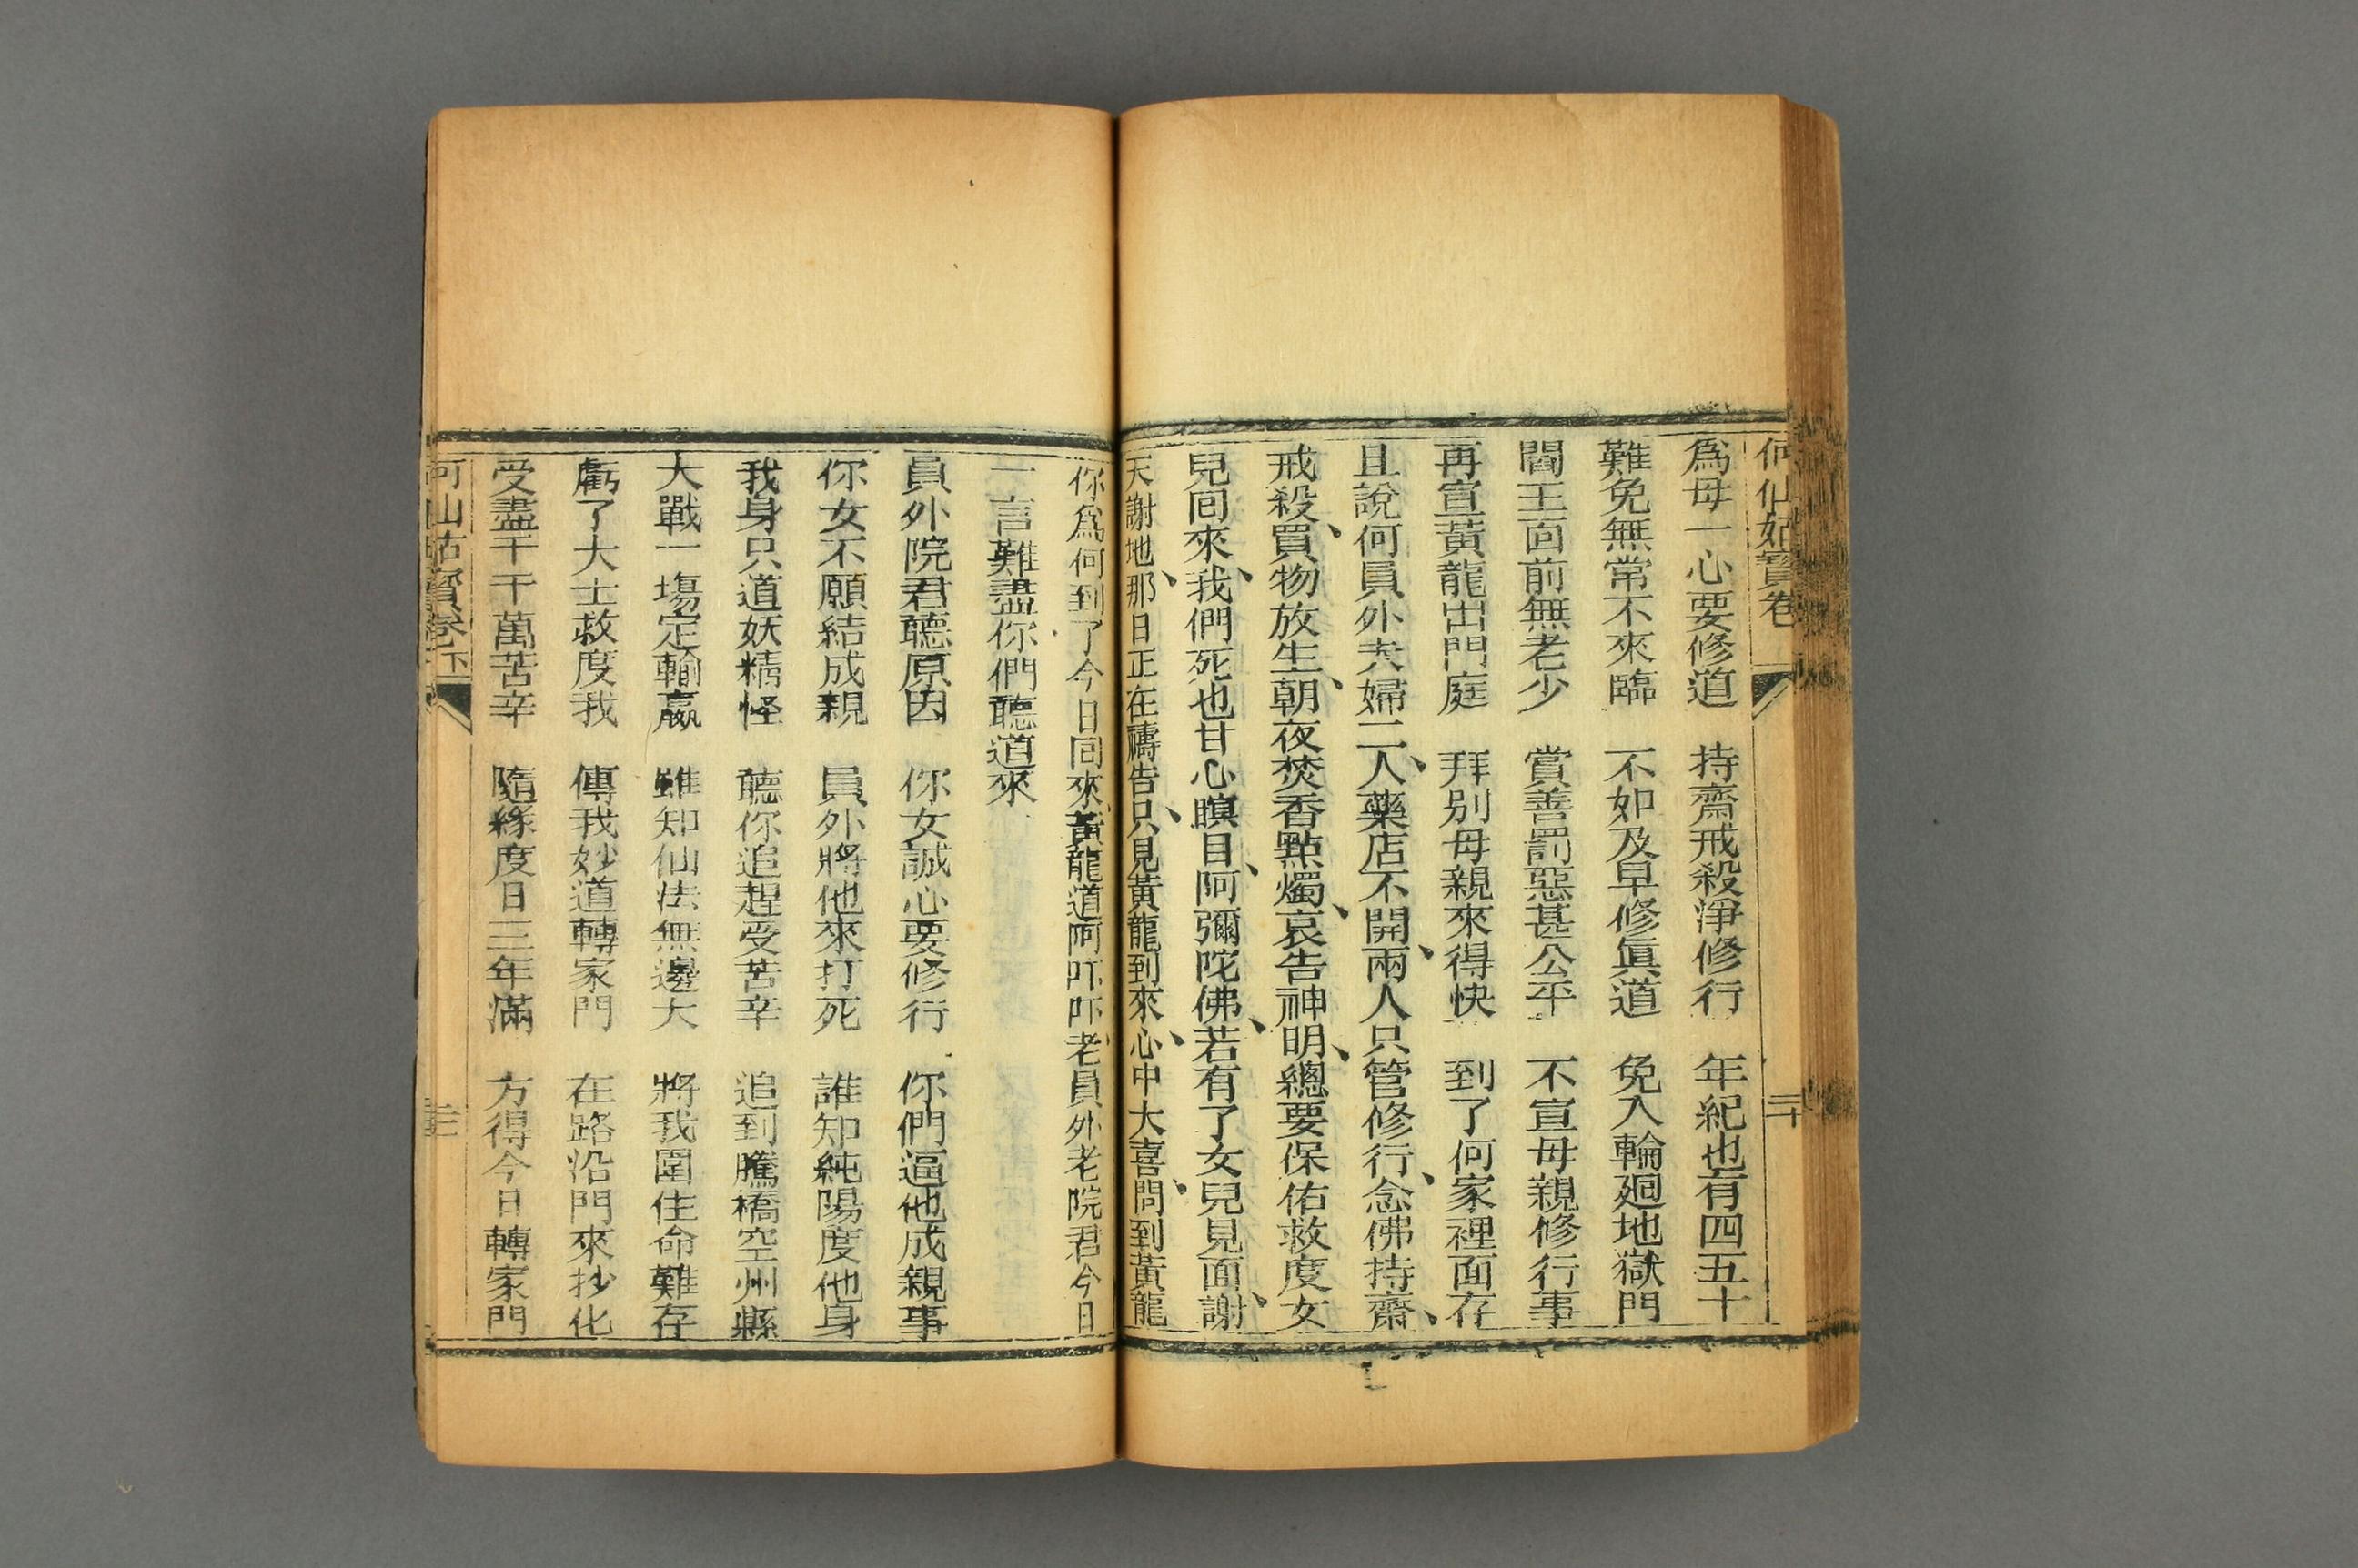 何仙姑寶卷
二十
爲母一心要修道 持齋戒殺淨修行 年紀也有四五十
難免無常不來臨 不如及早修眞道 免入輪廻地獄門
閻王面前無老少 賞善罰惡甚公平 不宣母親修行事
再宣黃龍出門庭 拜別母親來得快 到了何家裡面存
且說何員外夫婦二人、藥店不開、兩人只管修行、念佛持齋、
戒殺、買物放生、朝夜焚香點燭、哀告神明、總要保佑救度女
兒回來、我們死也甘心瞑目、阿彌陀佛、若有了女兒見面、謝
天謝地、那日正在禱告、只見黃龍到來、心中大喜、問到黃龍
你爲何到了今日回來、黃龍道阿吓吓老員外老院君今日
一言難盡你們聽道來
員外院君聽原因 你女誠心要修行 你們逼他成親事
你女不願結成親 員外將他來打死 誰知純陽度他身
我身只道妖精怪 聽你追趕受苦辛 追到騰橋空州縣
大戰一場定輸嬴 雖知仙法無邊大 將我圍住命難存
虧了大士救度我 傳我妙道轉家門 在路沿門來抄化
受盡千千萬苦辛 隨緣度日三年滿 方得今日轉家門
何仙姑寶卷下